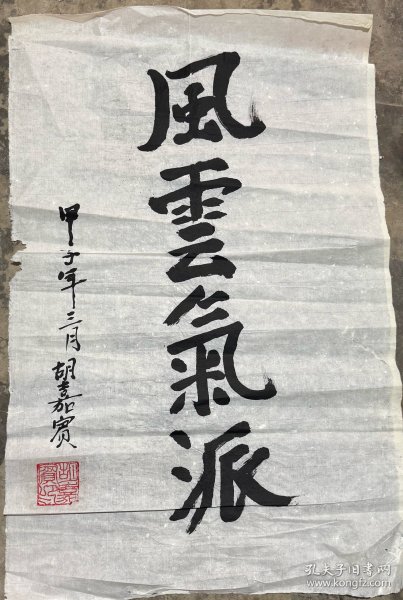 風雲氣派
甲子年三月胡嘉賓
孔夫子旧书网
www.kongfz.com